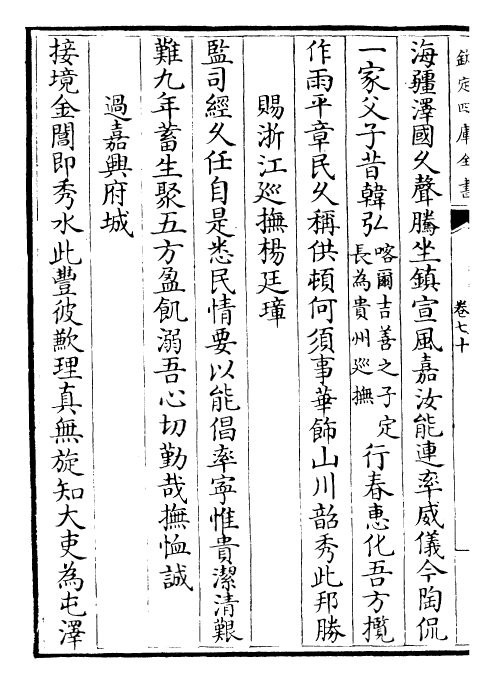 欽定四庫全書
卷七十
海疆澤國久聲騰坐鎮宣風嘉汝能連率威儀今陶侃
一家父子昔韓弘喀爾吉善之子定長為貴州廵撫行春惠化吾方攬
作雨平章民久稱供頓何須事華飾山川韶秀此邦勝
賜浙江廵撫楊廷璋
監司經久任自是悉民情要以能倡率寧惟貴潔清艱
難九年蓄生聚五方盈飢溺吾心切勤哉撫恤誠
過嘉興府城
接境金閶即秀水此豐彼歉理真無旋知大吏為屯澤